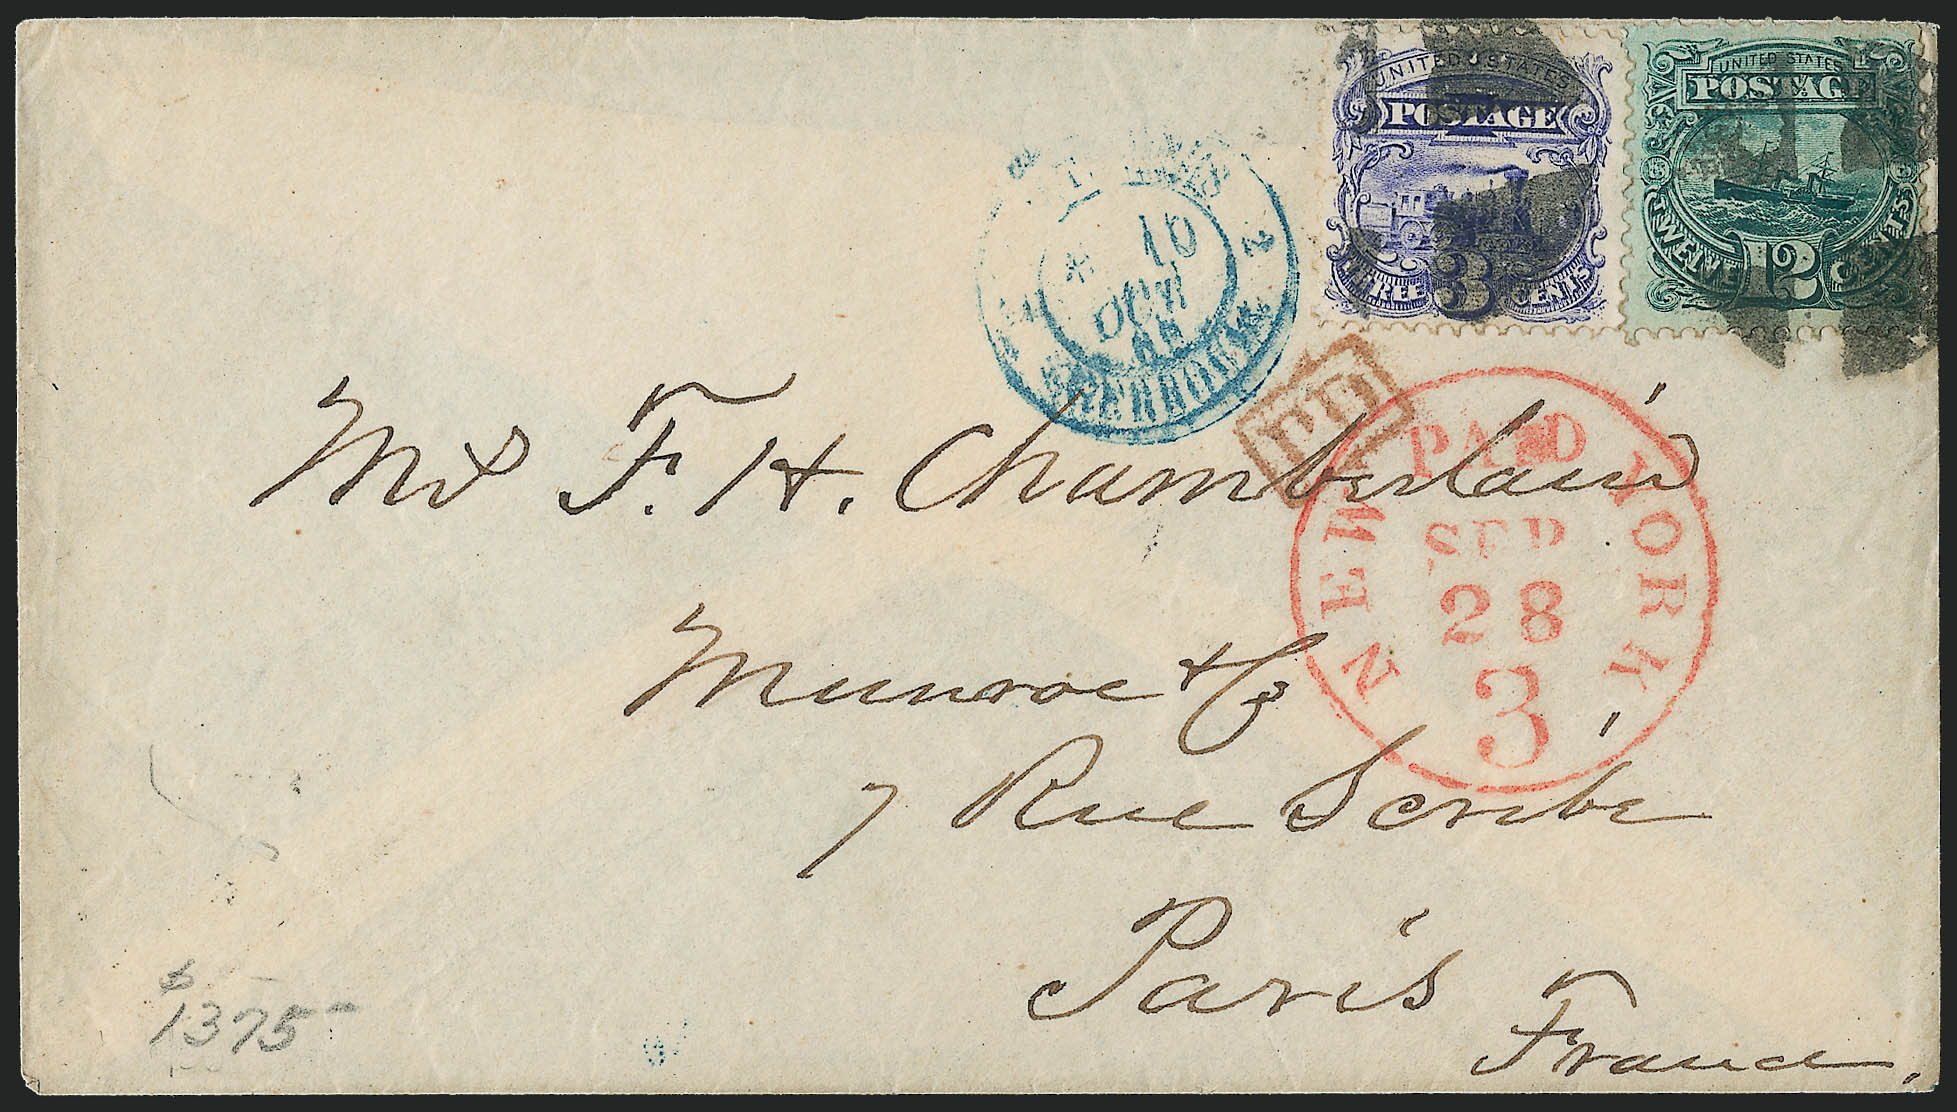 UNITED STATES
POSTAGE
3
THREE CENTS
UNITED STATES
POSTAGE
TWELVE 12 CENTS
10
OCT
CHERBOURG
PD
NEW YORK
PAID
SEP
28
3
F. H. Chamberlain
Munroe & Co
7 Rue Scribe
Paris
France.
$1375-